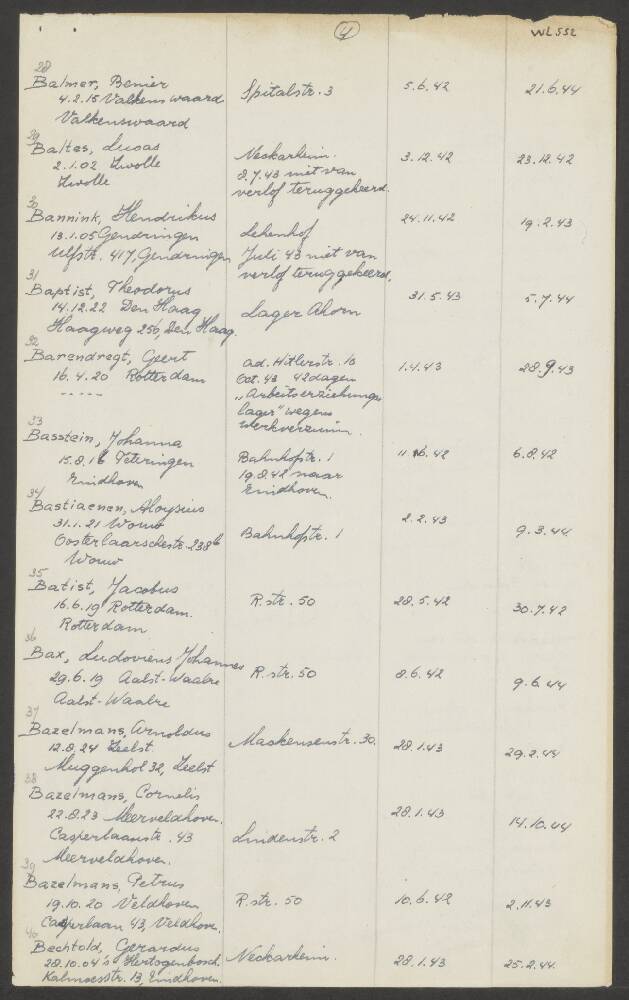 4
WL 552
28
Balmer, Benier Spitalstr. 3 5.6.42 21.6.44
4.2.15 Valkenswaard
Valkenswaard
29
Baltes, Lucas Neckarheim. 3.12.42 23.12.42
2.1.02 Zwolle 8.7.43 niet van
Zwolle verlof teruggekeerd.
30
Bannink, Hendrikus Lehenhof 24.11.42 19.2.43
13.1.05 Gendringen Juli 43 niet van
Ulfstr. 417, Gendringen verlof teruggekeerd.
31
Baptist, Theodorus Lager Ahorn 31.5.43 5.7.44
14.12.22 Den Haag
Haagweg 256, Den Haag.
32
Barendregt, Geert ad. Hitlerstr. 10 1.4.43 28.9.43
16.4.20 Rotterdam Oct. 43 42 dagen
----- "Arbeitserziehungs
lager" wegens
werkverzuim.
33
Basstein, Johanna Bahnhofstr. 1 11.6.42 6.8.42
15.8.16 Teteringen 19.8.42 naar
Eindhoven Eindhoven.
34
Bastiaenen, Aloysius Bahnhofstr. 1 2.2.43 9.3.44
31.1.21 Wouw
Oosterlaarschestr. 238b
Wouw
35
Batist, Jacobus R.str. 50 28.5.42 30.7.42
16.6.19 Rotterdam.
Rotterdam
36
Bax, Ludoviens Johannes R.str. 50 8.6.42 9.6.44
29.6.19 Aalst-Waalre
Aalst-Waalre
37
Bazelmans, Arnoldus Mackensenstr. 30. 28.1.43 29.2.44
12.8.24 Zeelst.
Muggenhol 32, Zeelst
38
Bazelmans, Cornelis Lindenstr. 2 28.1.43 14.10.44
22.8.23 Meerveldhoven.
43
Meerveldhoven.
39
Bazelmans, Petrus R.str. 50 10.6.42 2.11.43
19.10.20 Veldhoven
43, Veldhoven.
40
Bechtold, Gerardus Neckarheim. 28.1.43 25.2.44
28.10.04 's Hertogenbosch
Kalmoesstr. 13, Eindhoven.